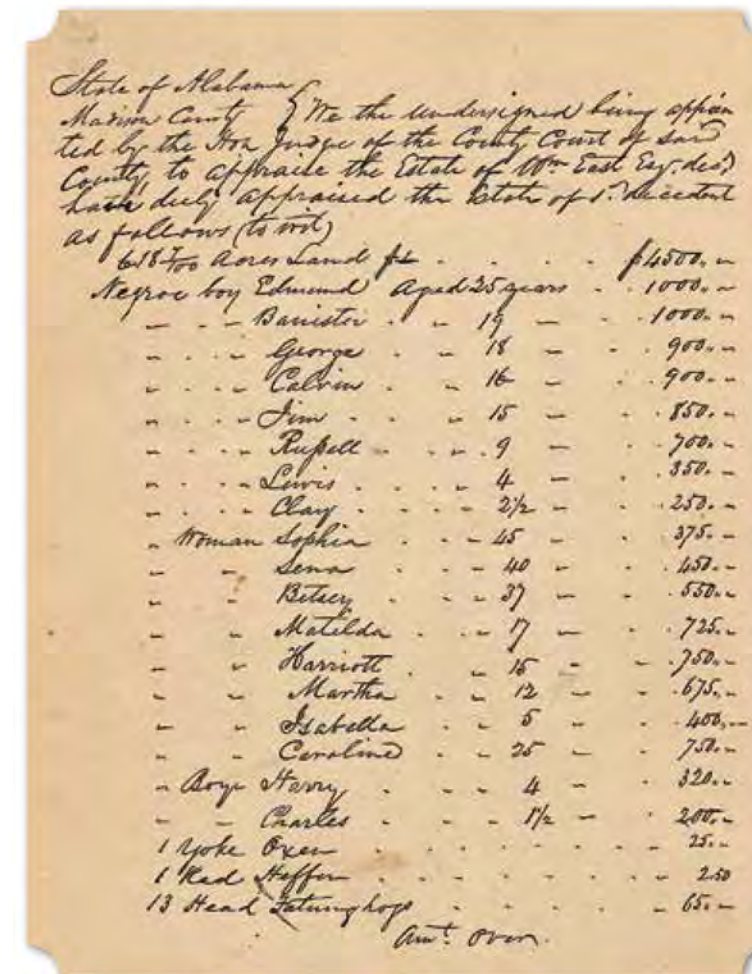 State of Alabama
Madison County } We the undersigned being appoin
ted by the Hon Judge of the County Court of said
County, to appraise the Estate of Wm East Esq, decd
have duly appraised the Estate of sd decedent
as follows (to wit)
Acres Land $4500.-
Negroe boy Edmund Aged 25 years - 1000.-
" " Banister " 19 " 1000.-
" " George " 18 " 900.-
" " Calvin " 16 " 900.-
" " Jim " 15 " 850.-
" " Russell " 9 " 700.-
" " Lewis " 4 " 350.-
" " Clay " 2 1/2 " 250.-
" Woman Sophia " 45 " 375.-
" " Sena " 40 " 450.-
" " Betsey " 37 " 550.-
" " Matilda " 17 " 725.-
" " Harriott " 15 " 750.-
" " Martha " 12 " 675.-
" " Isabella " 5 " 400.-
" " Caroline " 25 " 750.-
" Boys Harry " 4 " 320.-
" " Charles " 1 1/2 " 200.-
1 Yoke Oxen - 25.-
1 Red Heffer - 2.50
13 Head Fatning hogs - 65.-
Amt. Over.